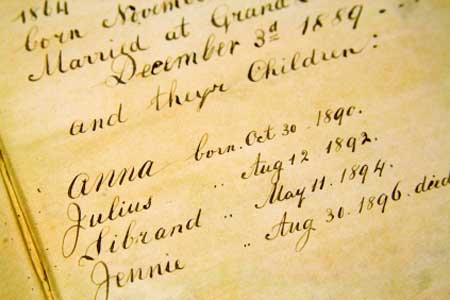 1864
born November
Married at Grand
December 3d 1889 . . .
and theyr Children:
Anna born. Oct 30. 1890.
Julius " Aug 12 1892.
Sibrand " May 11. 1894.
Jennie " Aug 30. 1896. died